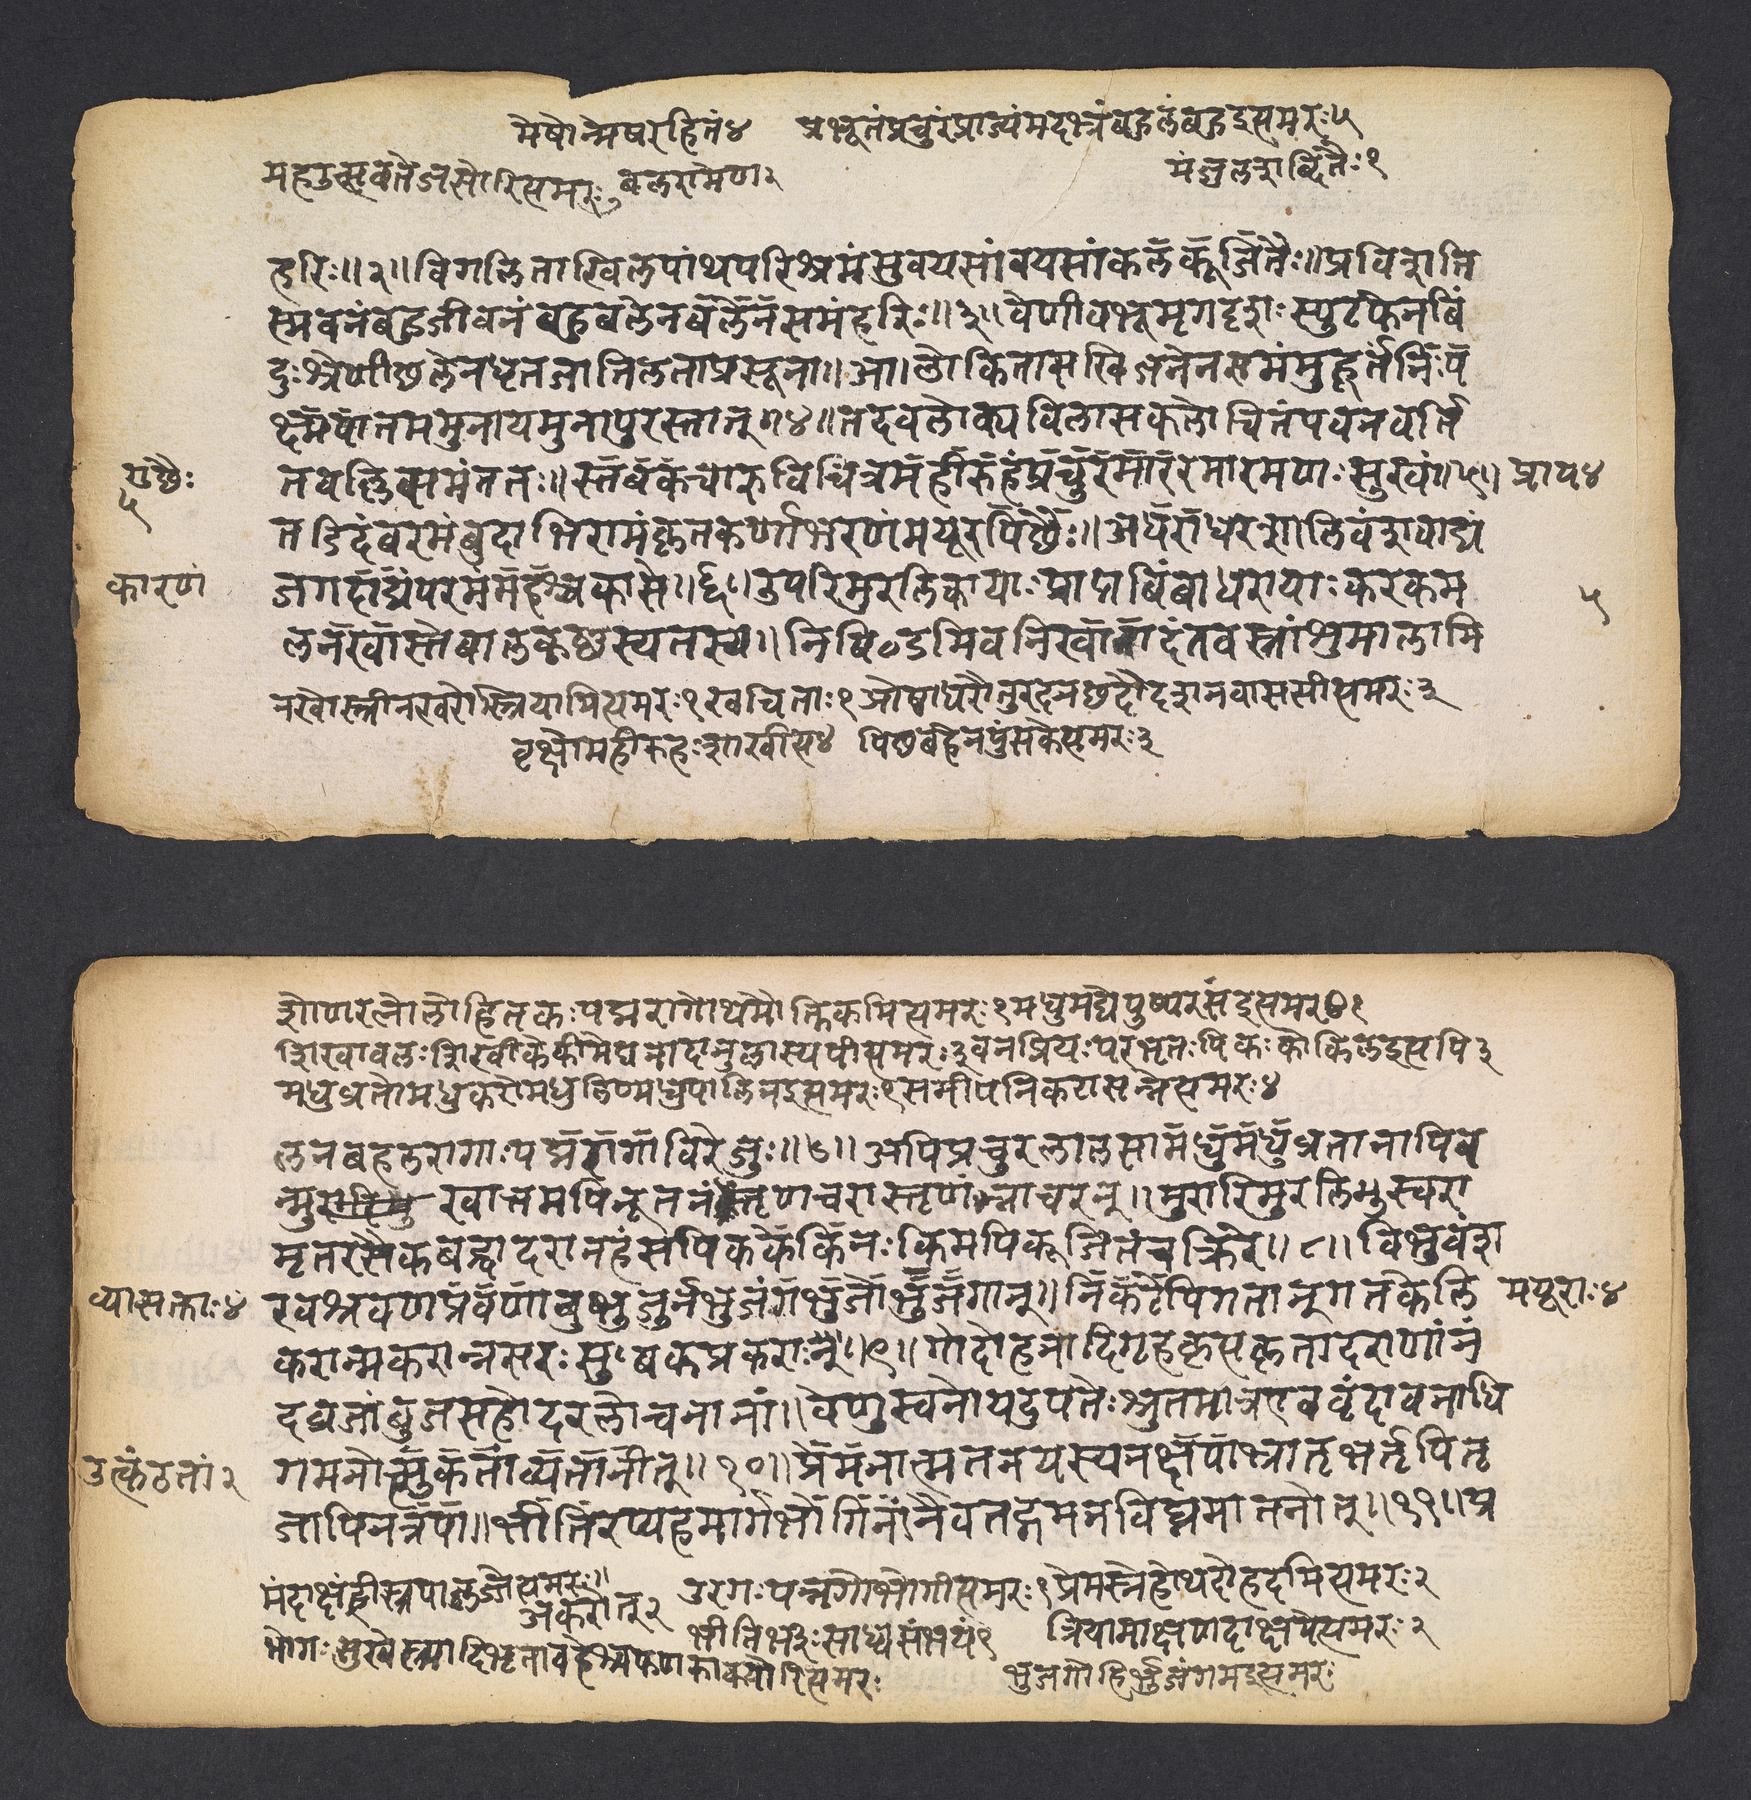 मेषोन्मेषरहितं४ प्रभूतंप्रचुरंप्राज्यंमदभ्रंबहुलंबहुइत्यमरः५
महउत्सवतेजसोरित्यमरः बलरामेण२ मंजुलशब्दितैः१
हरिः॥२॥विगलिताखिलपांथपरिश्रमंसुवयसांवयसांकलकूजितैः॥प्रविशति
स्मवनंबहुजीवनंबहुबलेनबलेनसमंहरिः॥३॥वेणीवभूमृगदृशःस्फुटफेनबिं
दुःश्रेणीछलेनधृतजातिलताप्रसूना॥आ।लोकितासखिजनेनसमंमुहूर्तंनिःप
क्ष्मपातममुनायमुनापुरस्तात्॥४॥तदवलोक्यविलासकलोचितंपवनवर्ति
गुछैः५
तवल्लिसमंततः॥स्तबकचारुविचित्रमहीरुहंप्रचुरमाररमारमणःसुखं॥५॥ प्राप४
तडिदंबरमंबुदाभिरामंकृतकर्णाभरणंमयूरपिंछैः॥अधराधरशालिवंशवाद्यं
कारणं
जगदाद्यंपरमंमहश्चकासे॥६॥उपरिमुरलिकायाःप्राप्तबिंबाधरायाःकरकम ५
लनखास्तेबालकृष्णस्यतस्य॥निबिडमिवनिखातादंतवस्त्रांशुमालामि
नखोस्त्रीनखरोस्त्रियामित्यमरः१खचिताः१ओष्ठाधरौतुरदनछदौदशनवाससीत्यमरः३
वृक्षोमहीरुहःशाखीत्य४ पिछबर्हेनपुंसकेत्यमरः३
शोणरत्नोलोहितकःपद्मरागोथमौक्तिकमित्यमरः१मधुमद्येपुष्परसेइत्यमर१
शिखावलःशिखीकेकीमेघनादानुलास्यपीत्यमरः३वनप्रियःपरभृतःपिकःकोकिलइत्यपि३
मधुव्रतोमधुकरोमधुलिण्मधुपालिनइत्यमरः१समीपेनिकटासन्नेत्यमरः४
लनबहलरागाःपद्मरागाविरेजुः॥७॥अपिप्रचुरलालसामधुमधुव्रतानापिब
न्मुखात्तमपिनूतनंतृणचरास्तृणंनाचरन्॥मुरारिमुरलिभुस्वरा
मृतरसैकबद्धादरानहंसपिककेकिनःकिमपिकूजितंचक्रिरे॥८॥विभुवंश
व्यासक्ताः४
रवश्रवणप्रवणाबुभुजुर्नभुजंगभुजोभुजगान्॥निकटेपिगतानुगतकेलि मयूराः४
करान्मकरान्नसरःसुबकप्रकराःनु॥९॥गोदोहनादिगृहकृत्यकृतादराणांनं
दव्रजांबुजसहोदरलोचनानां॥वेणुस्वनोयदुपतेःश्रुतमात्रएववृंदावनाधि
उत्कंठतां२
गमनोत्सुकतांव्यतानीत्॥१०॥प्रेमनात्मतनयस्यनक्षपाभ्रातृभर्तृपितृ
जापिनत्रपा॥भीतिरप्यहमार्गभोगिनांनैवतद्गमनविघ्नमातनोत्॥११॥प्र
मंदाक्षंह्रीस्त्रपालज्जेत्यमरः॥ उरगःपन्नगोभोगीत्यमरः१प्रेमस्नेहोथदोहदमित्यमरः२
अकरोत्२ भीतिर्भीःसाध्वसंभयं१ त्रियामाक्षणदाक्षपेत्यमरः२
भोगःसुखेस्त्र्यादिभृतावहेश्चफणकाययोरित्यमरः भुजगोहिर्भुजंगमइत्यमरः